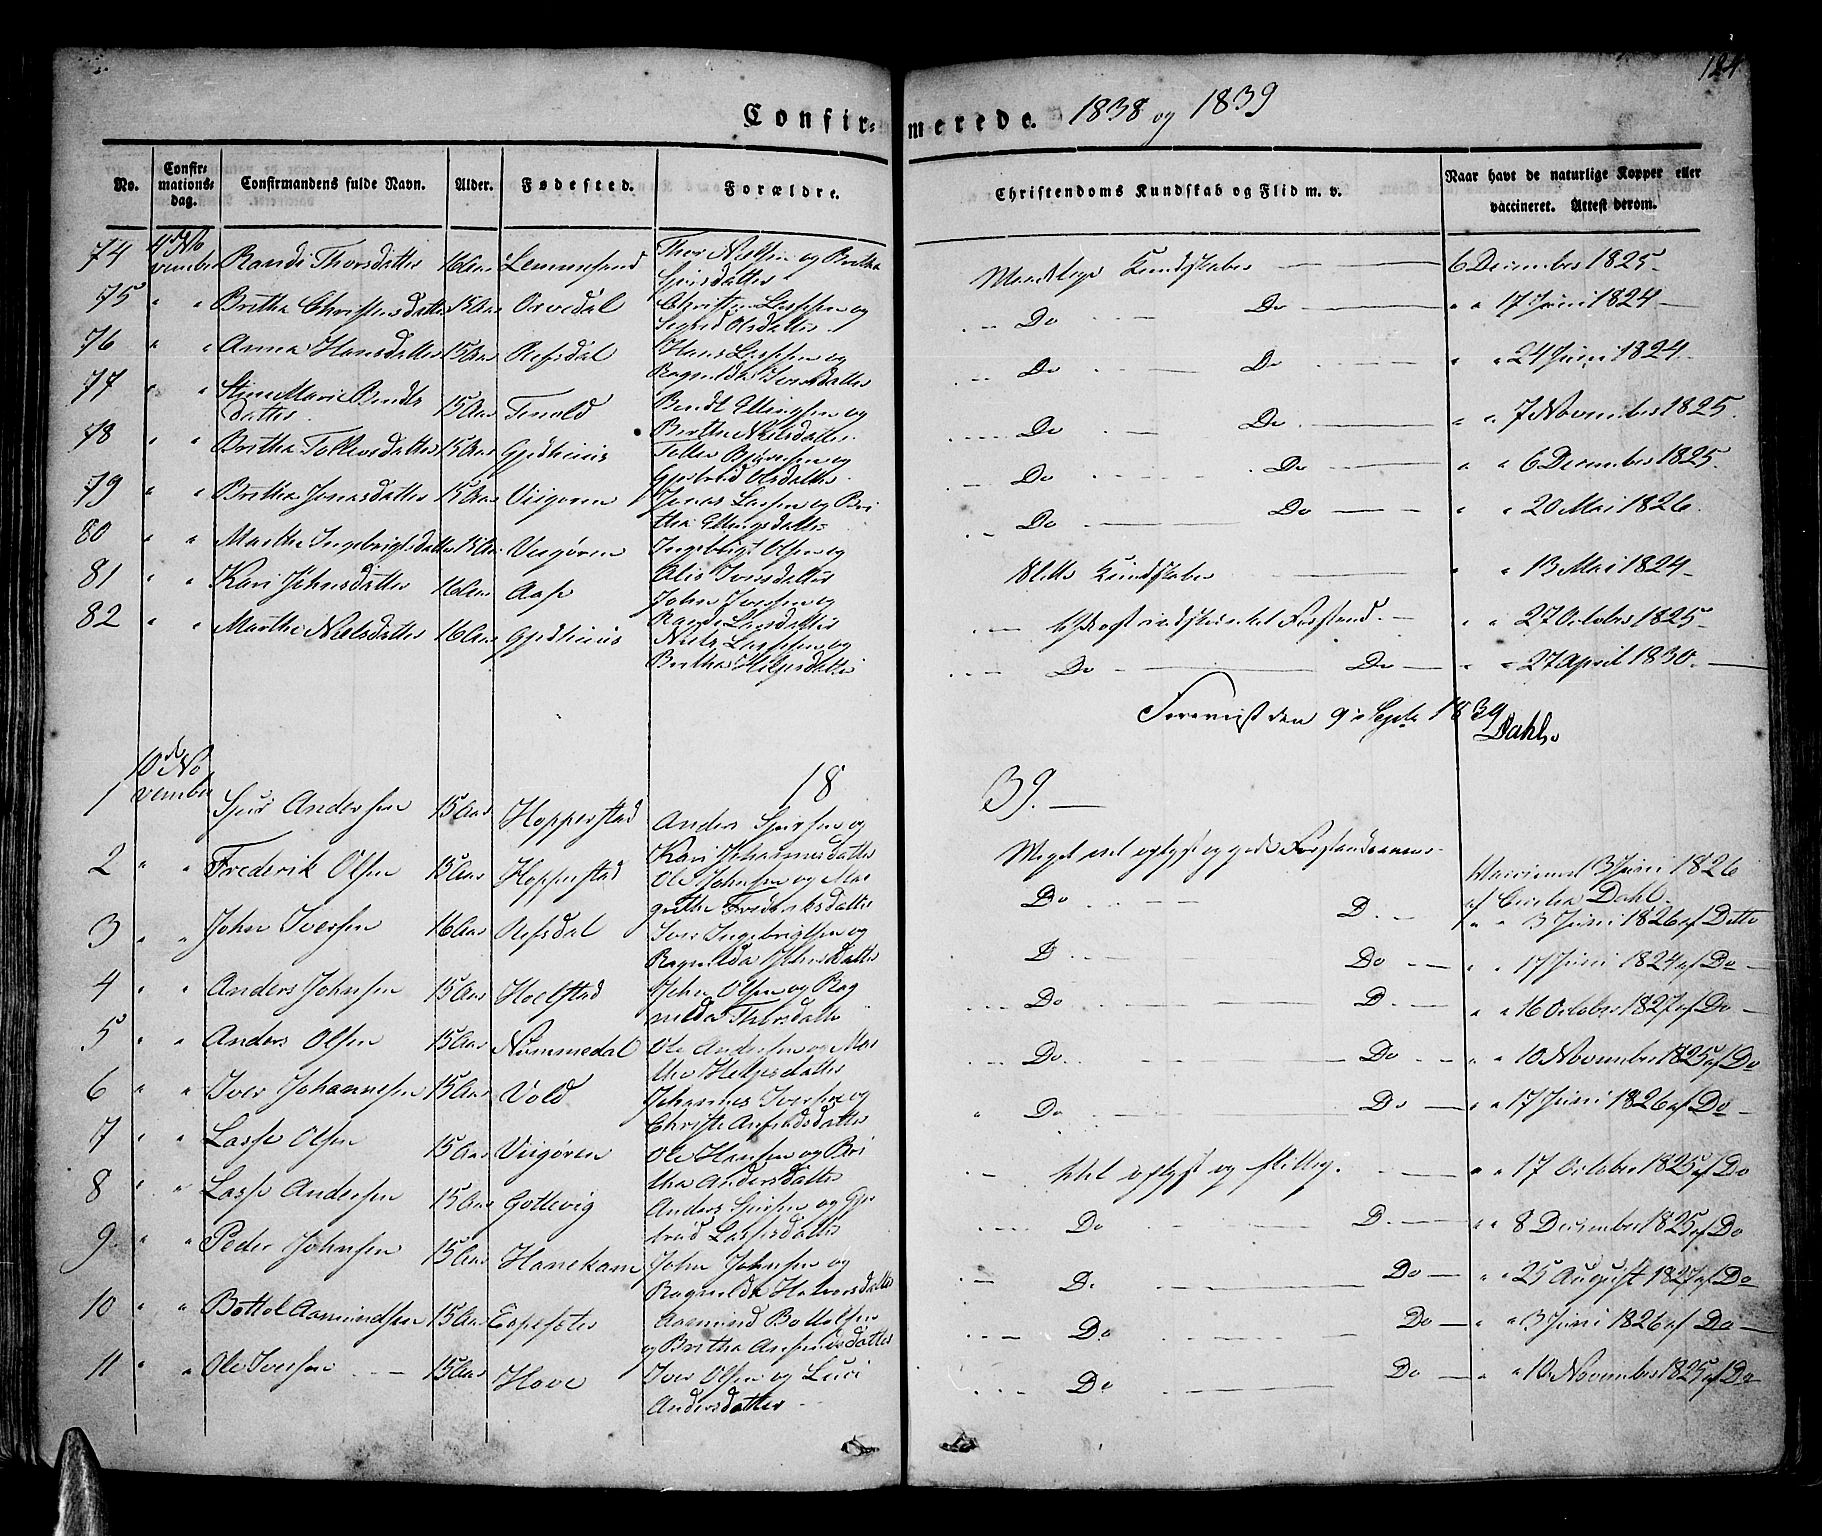 124
Confirmerede. 1838 og 1839
No.
Confirmationsdag.
Confirmandens fulde Navn.
Alder.
Fødested.
Forældre.
Christendoms Kundskab og Flid m. v.
Naar havt de naturlige Kopper eller vaccineret. Attest derom.
74 4de November Randi Thorsdatter 16 Aar Thor Nielsen og Britha Sjursdatter Kundskaber 6 December 1825
75 " " Britha Christensdatter 15 Aar Orvedal Christen Lassesen og Sigrid Olsdatter Do Do " " 17 Juni 1824
76 " " Anna Hansdatter 15 Aar Refsdal Hans Lassesen og Ragnilda Iversdatter Do Do " " 24 Juni 1824
77 " " Stine Marie Bendtsdatter 15 Aar Tenold Bendt Ellingsen og Berthe Nielsdatter Do Do " " 7 November 1825
78 " " Britha Tollevsdatter 15 Aar Tollev og Gjertrud Olsdatter Do Do " " 6 December 1825
79 " " Britha Jonasdatter 15 Aar Vigøren Jonas Lassesen og Britha Ellingsdatter Do Do " " 20 Mai 1826
80 " " Martha Ingebrigtsdatter 15 Aar Vigøren Ingebrigt Olsen og Iversdatter Slette Kundskaber " " 13 Mai 1824
81 " " Kari Johnsdatter 16 Aar Aase John Iversen og Randi Larsdatter Forstand " " 27 October 1825
82 " " Marthe Nielsdatter 16 Aar Niels Lassesen og Britha Helgesdatter Do Do " " 27 April 1830
Foreviist den 9de Septr 1839
Dahl.
1839.
1 10de November Sjur Andersen 15 Aar Hopperstad Anders Sjursen og Kari Johannesdatter Meget vel oplyst og gode Forstandsevner Vaccineret 3 Juni 1826 af Cecilia Dahl.
2 " " Frederik Olsen 15 Aar Hopperstad Ole Johnsen og Margrethe Fredriksdatter Do D. " " 3 Juni 1826 af Ditto
3 " " John Iversen 16 Aar Refsdal Iver Ingebrigtsen og Ragnilda Johnsdatter D. Do " " 17 Juni 1824 af Do
4 " " Anders Johnsen 15 Aar Hoelstad John Olsen og Ragnilda Thorsdatter Do D. " " 16 October 1827 af Do
5 " " Anders Olsen 15 Aar Nummedal Ole Andersen og Martha Helgesdatter Do. Do " " 10 November 1825 af Do
6 " " Iver Johannesen 15 Aar Vold Johannes Iversen og Christi Do Do " " 17 Juni 1826 af Do
7 " " Lasse Olsen 15 Aar Vigøren Ole Hansen og Britha Andersdatter Vel oplyst og flittig. " " 17 October 1825 af Do
8 " " Lasse Andersen 15 Aar Gottevig Anders Sjursen og Gjertrud Lassesdatter Do D. " " 8 December 1825 af Do
9 " " Peder Johnsen 15 Aar Hanekam John Johnsen og Ragnilda Halvorsdatter D. Do " " 25 August 1827 af Do
10 " " Bottol Aamundsen 15 Aar Espesæter Aamund Bottolsen og Britha Do Do " " 3 Juni 1826 af Do
11 " " Ole Iversen 15 Aar Hove Iver Olsen og Luci Andersdatter Do Do " " 10 November 1825 af Do